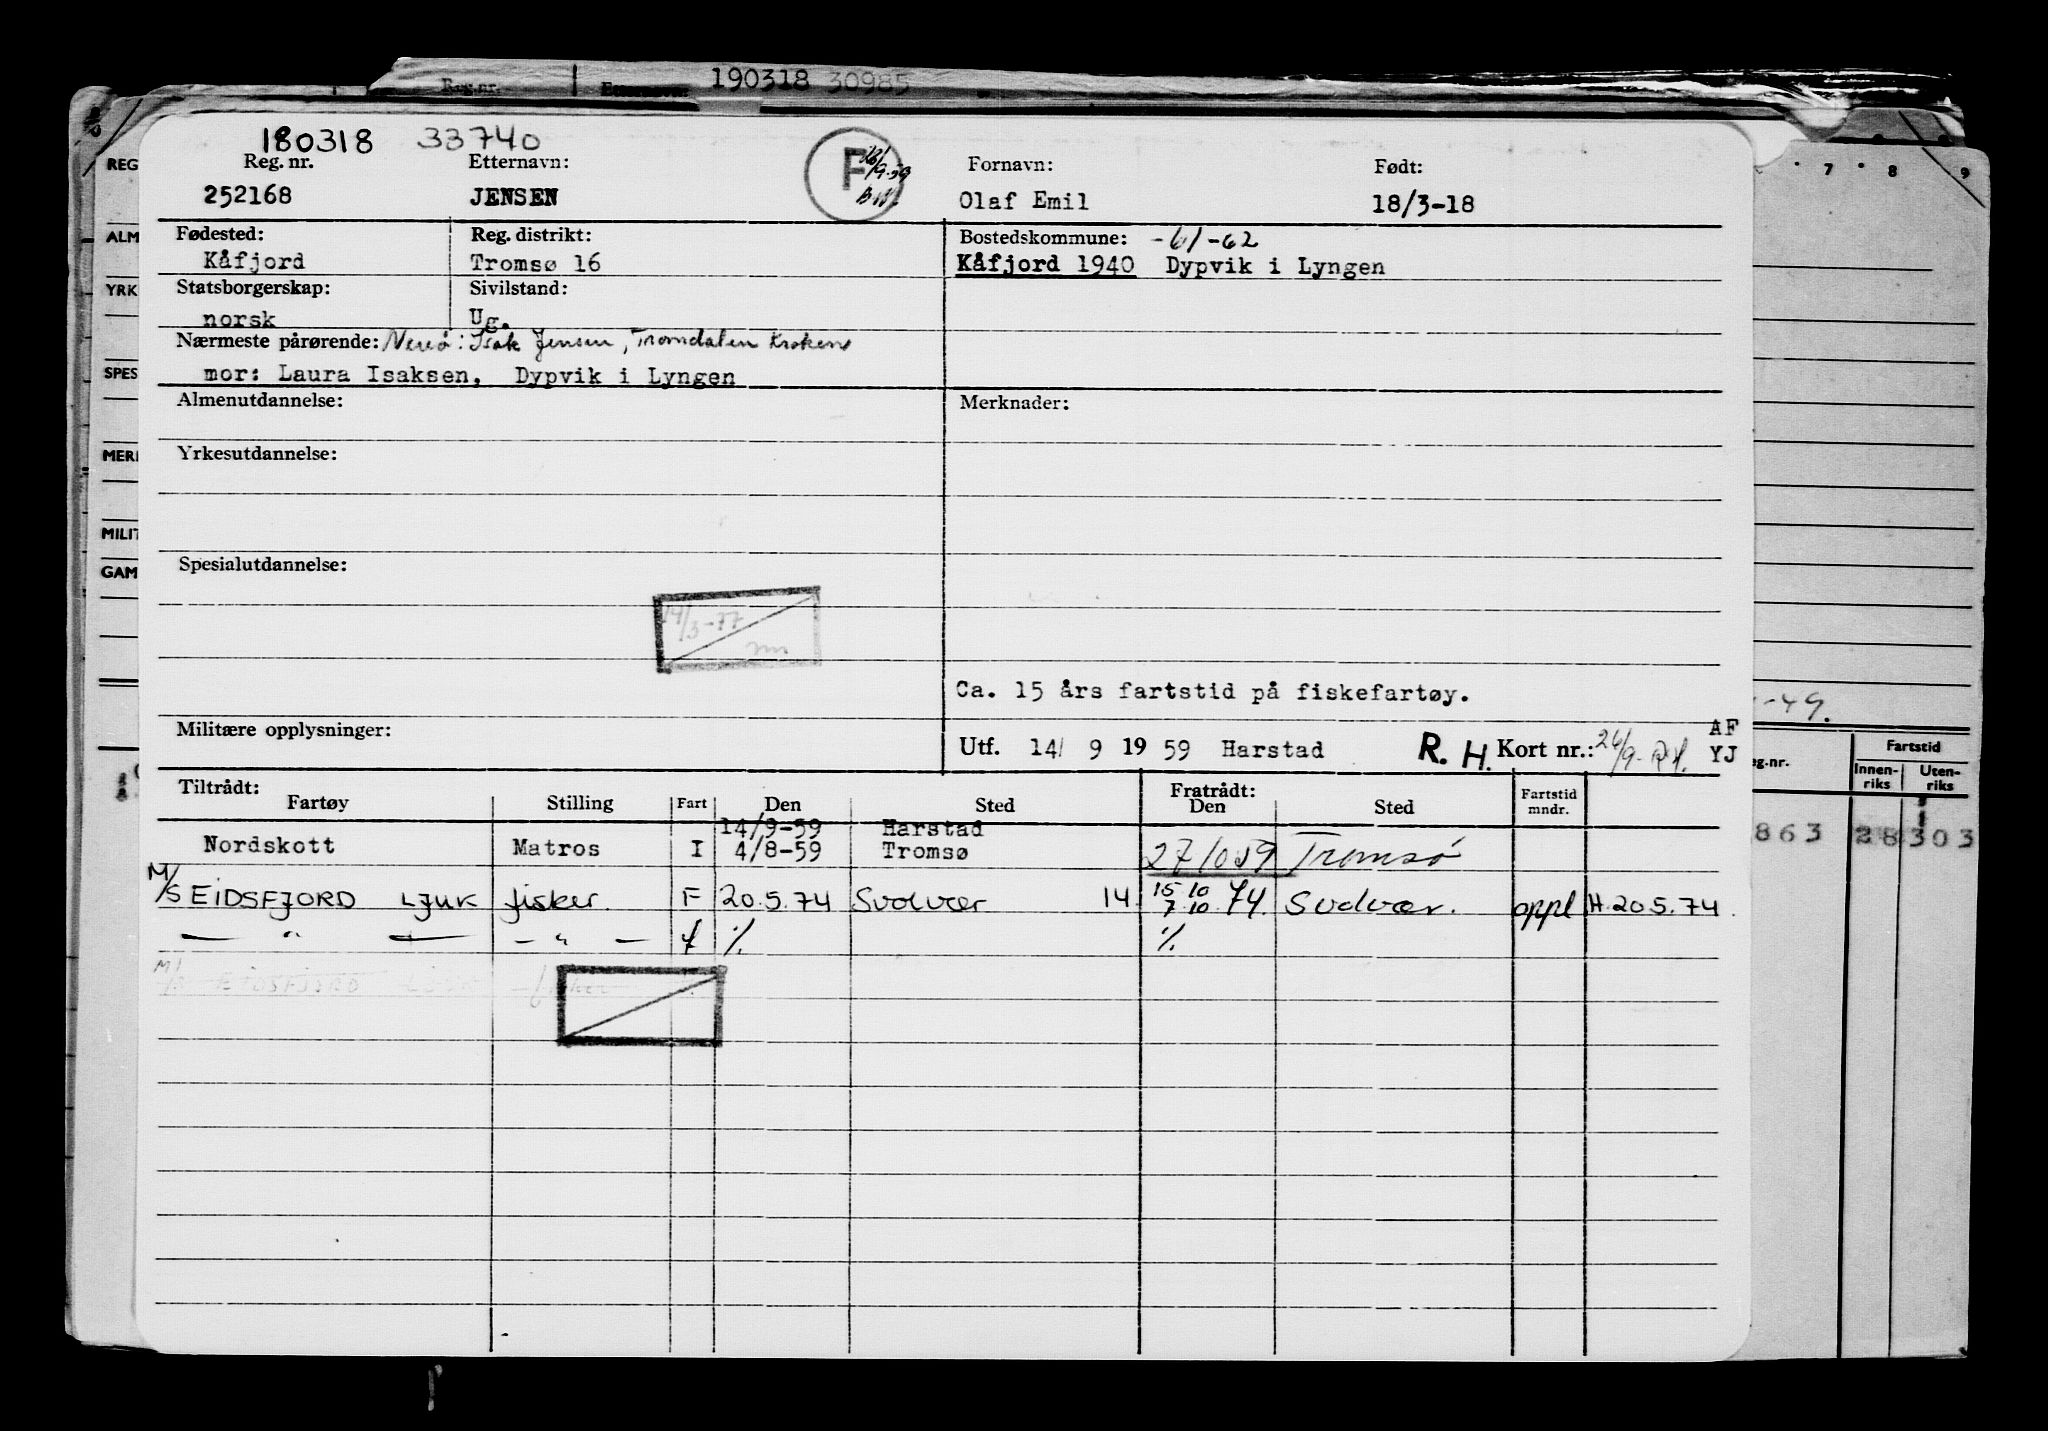 Reg.nr. 190318 30985
180318 33740
Reg. nr. Etternavn: F Fornavn: Født:
252168 JENSEN Olaf Emil 18/3-18
Fødested: Reg. distrikt: Bostedskommune: -61-62
Kåfjord Tromsø 16 Kåfjord 1940 Dypvik i Lyngen
Statsborgerskap: Sivilstand:
norsk Ug.
Nærmeste pårørende: Isak Jensen, Tromdalen Kroken
mor: Laura Isaksen, Dypvik i Lyngen
Almenutdannelse: Merknader:
Yrkesutdannelse:
Spesialutdannelse:
14/3-77
Ca. 15 års fartstid på fiskefartøy.
Militære opplysninger: Utf. 14/ 9 19 59 Harstad R. H. Kort nr.: 26/9 AF YJ
Tiltrådt: Fratrådt:
Fartøy Stilling Fart Den Sted Den Sted Fartstid mndr.
14/9-59 Harstad
Nordskott Matros I 4/8-59 Tromsø 27/10 59 Tromsø
M/S EIDSFJORD LJUK fisker. F 20.5.74 Svolvær 14 15/7 10/10 74. Svolvær. oppl H.20.5.74.
— " — — " — f % %
M/S EIDSFJORD
REG
ALM
YRK
SPES
MERK
MILIT
GAM
7 8 9
-49.
eg.nr. Fartstid
Innen-riks Uten-riks
863 28 303